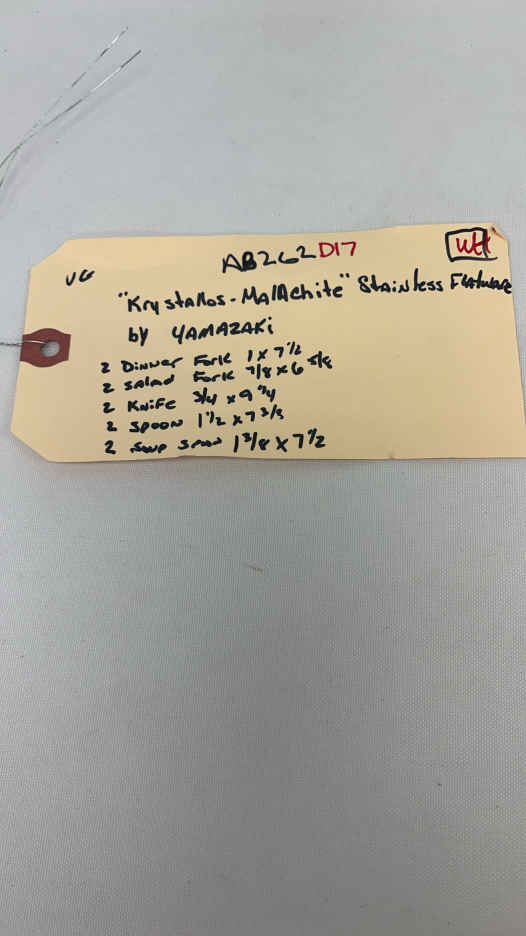 VG AB262 D17 WH
"Krystallos-Malachite" Stainless Flatware
by YAMAZAKi
2 Dinner Fork 1 x 7 1/2
2 Salad Fork 7/8 x 6 5/8
2 Knife 3/4 x 9 1/4
2 Spoon 1 1/2 x 7 3/8
2 Soup Spoon 1 3/8 x 7 1/2